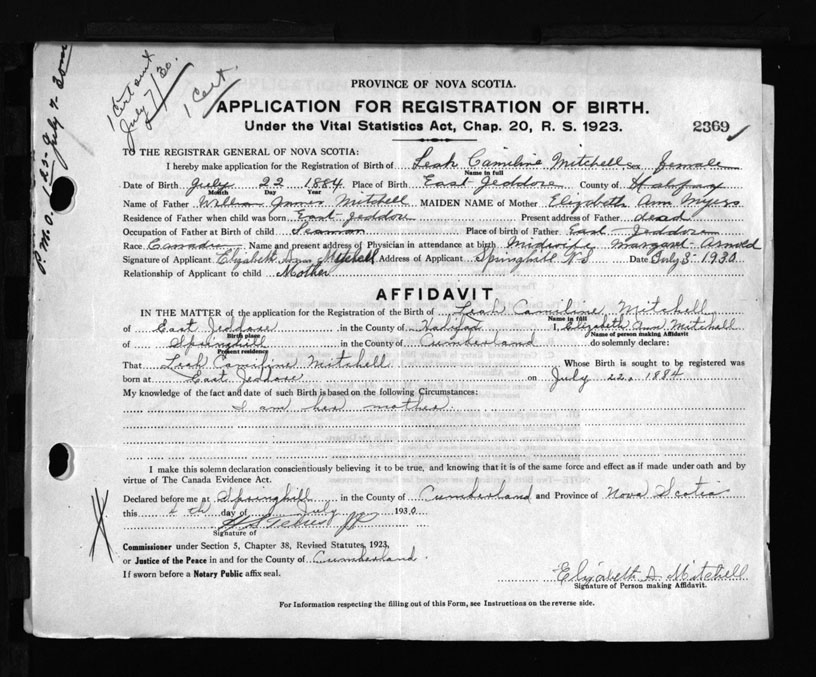 1 Cert sent
July 7/30.
1 Cert.
P.M.O. 1.25- July 7. 30
PROVINCE OF NOVA SCOTIA.
APPLICATION FOR REGISTRATION OF BIRTH.
Under the Vital Statistics Act, Chap. 20, R. S. 1923.
2369
TO THE REGISTRAR GENERAL OF NOVA SCOTIA:
I hereby make application for the Registration of Birth of Leah Camiline Mitchell Sex female
Name in full
Date of Birth July 22 1884 Place of Birth East Jeddore County of Halifax
Month Day Year
Name of Father William James Mitchell MAIDEN NAME of Mother Elizabeth Ann Myers
Residence of Father when child was born East Jeddore Present address of Father dead
Occupation of Father at Birth of child Seaman Place of birth of Father East Jeddore
Race Canadian Name and present address of Physician in attendance at birth Midwife Margaret Arnold
Signature of Applicant Elizabeth Ann Mitchell Address of Applicant Springhill N S Date July 3 1930
Relationship of Applicant to child Mother
AFFIDAVIT
IN THE MATTER of the application for the Registration of the Birth of Leah Camiline Mitchell
Name in full
of East Jeddore in the County of Halifax I, Elizabeth Ann Mitchell
Birth place Name of person making Affidavit
of Springhill in the County of Cumberland do solemnly declare:
Present residence
That Leah Camiline Mitchell Whose Birth is sought to be registered was
born at East Jeddore on July 22, 1884
My knowledge of the fact and date of such Birth is based on the following Circumstances:
I am her mother
I make this solemn declaration conscientiously believing it to be true, and knowing that it is of the same force and effect as if made under oath and by
virtue of The Canada Evidence Act.
Declared before me at Springhill in the County of Cumberland and Province of Nova Scotia
this 4th day of July 1930
Signature of
Commissioner under Section 5, Chapter 38, Revised Statutes, 1923,
or Justice of the Peace in and for the County of Cumberland.
If sworn before a Notary Public affix seal.
Elizabeth A. Mitchell
Signature of Person making Affidavit.
For Information respecting the filling out of this Form, see Instructions on the reverse side.